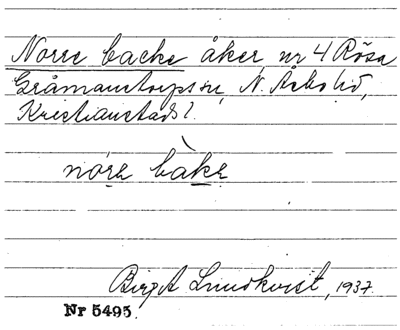 Norre backe åker, nr 4 Rösa
Gråmanstorps sn, N. Åsbo hd,
Kristianstads l.
nǫ́rę bàkę
Birgit Lundkvist, 1937.
Nr 5495.